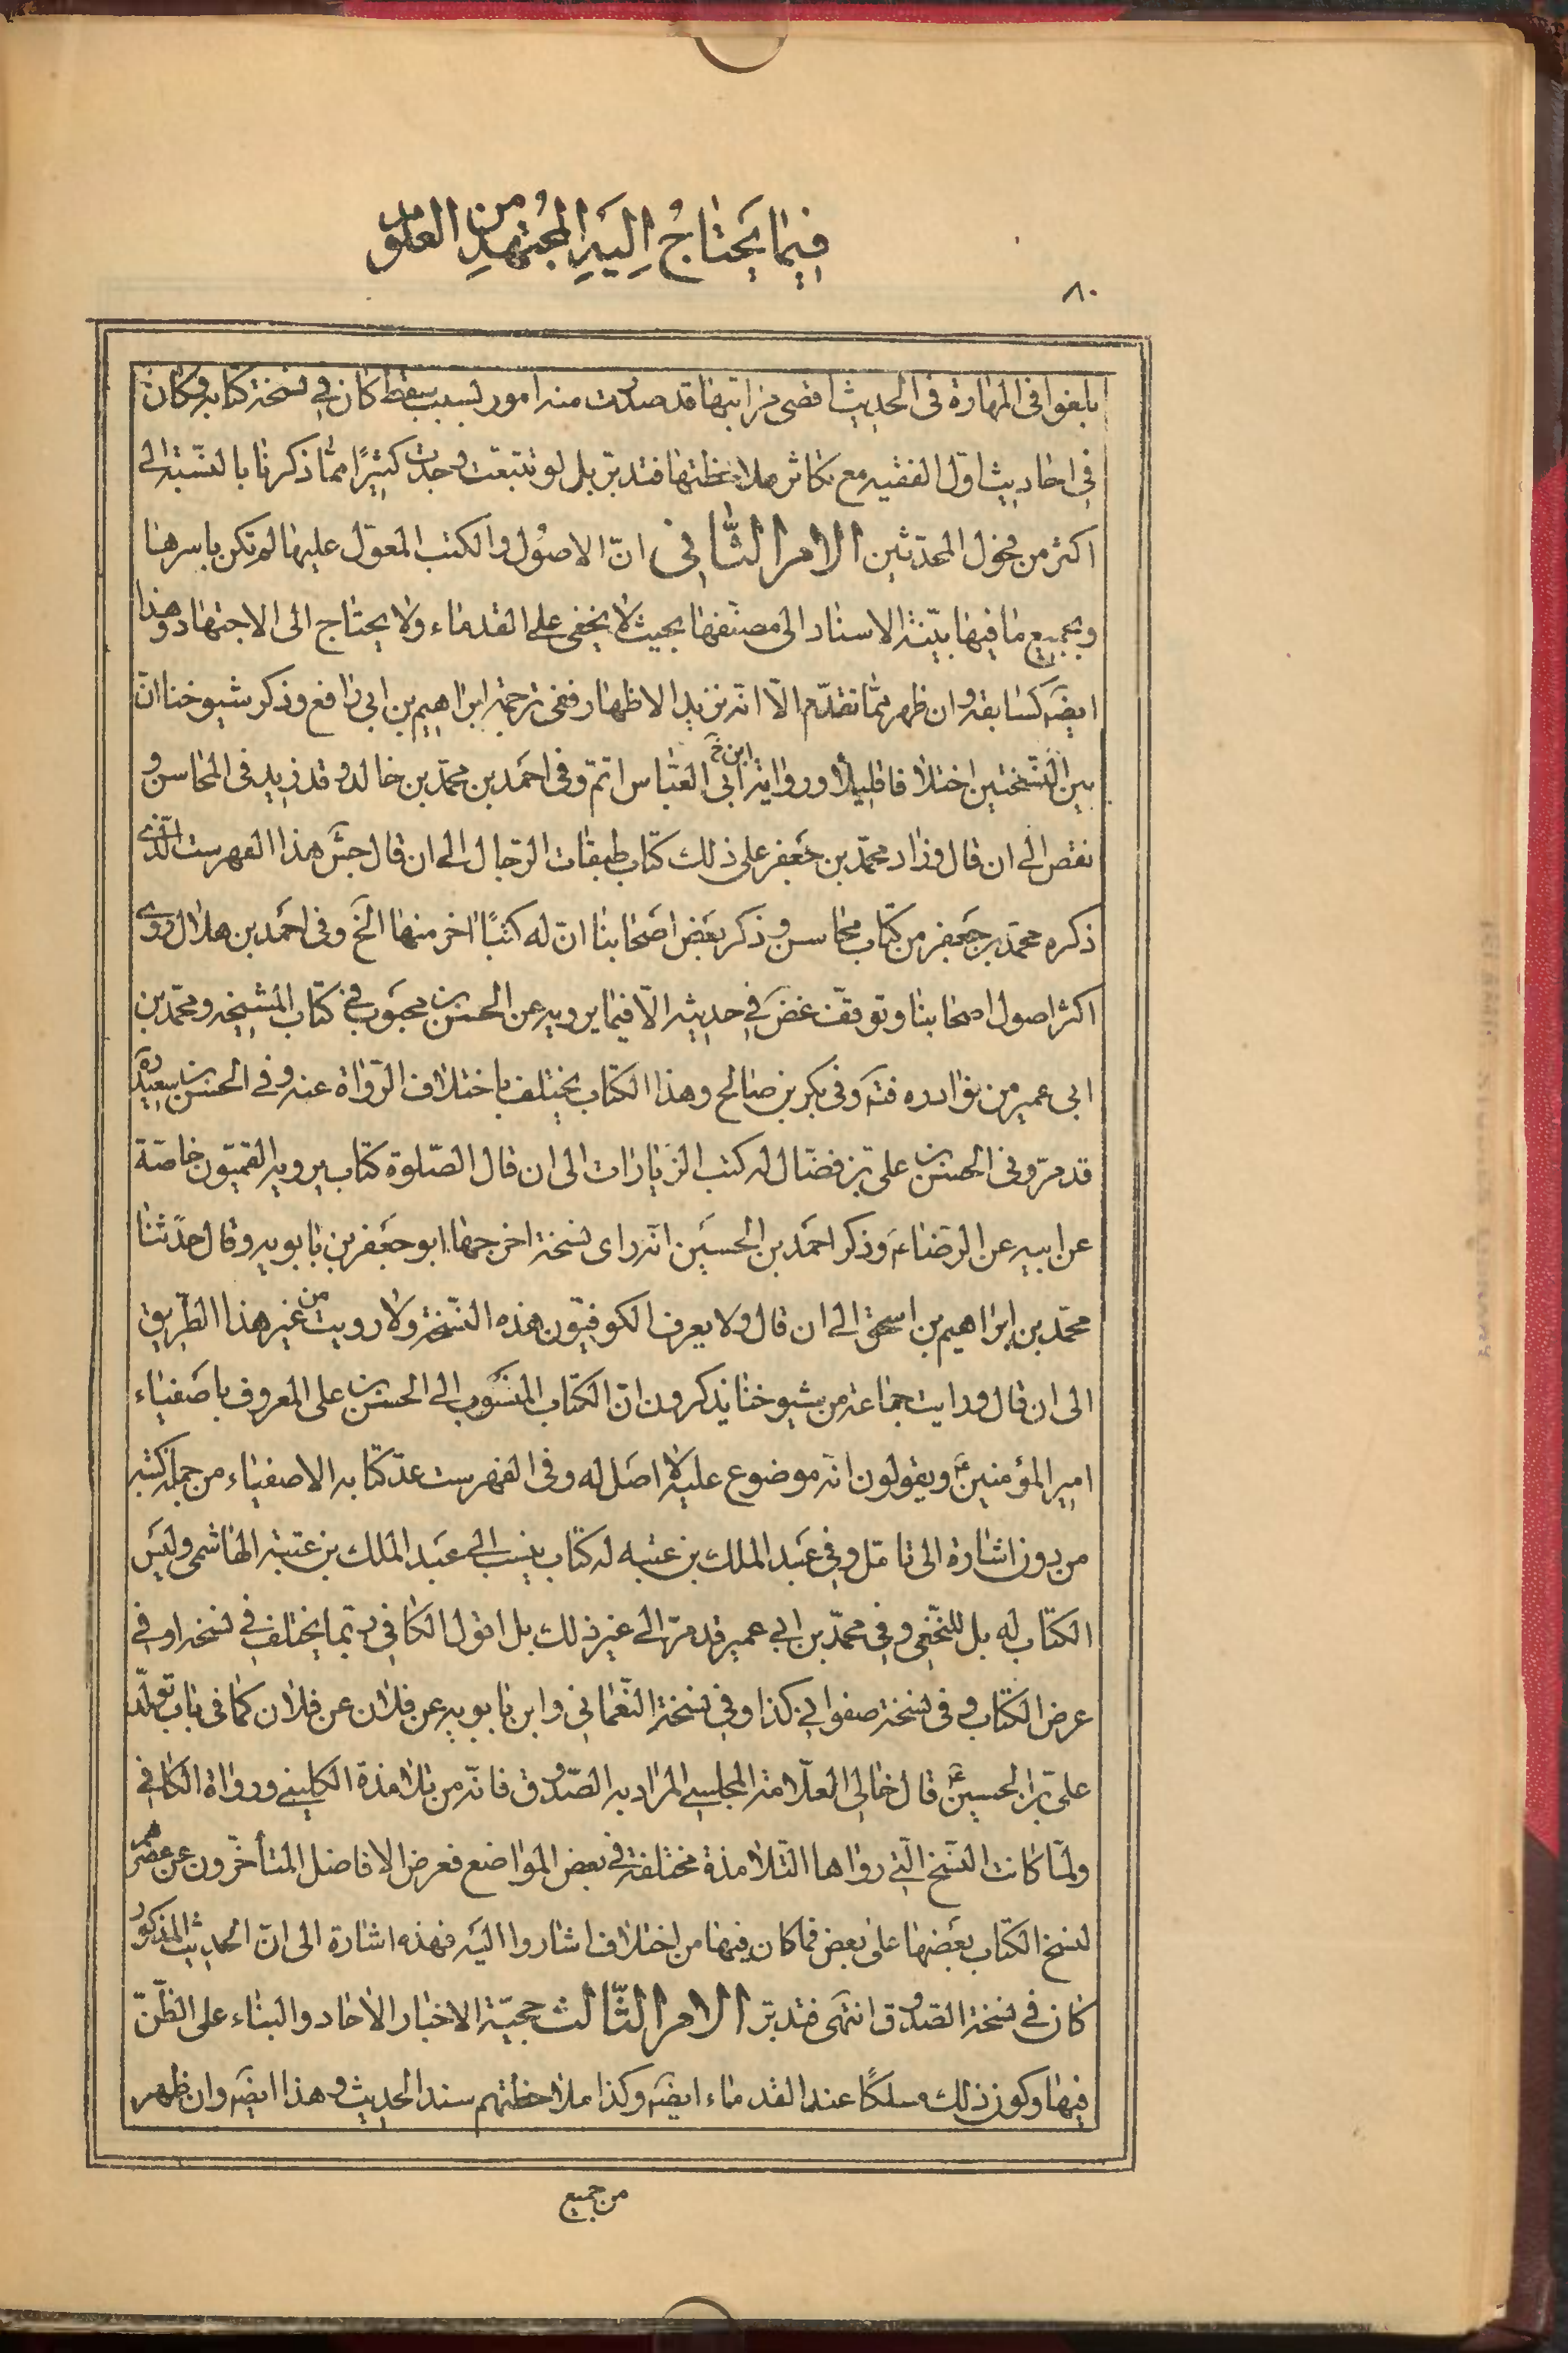 فيما يحتاج اليه المجتهد من العلوم
٨٠
بلغوا فى المهارة فى الحديث اقصى مراتبها قد صدرت منه امور بسبب سقط كان فى نسخة كتابه وكان
فى احاديث اوّل الفقيه مع تكاثر ملاحظتها فتدبّر بل لو تتبعت وجدت كثيرًا ممّا ذكرنا بالنسّبة الى
اكثر من فحول المحدّثين الامر الثّانى انّ الاصُول والكتب المعوّل عليها لم تكن باسرها
وبجميع ما فيها بيّنة الاسناد الى مصنّفها بحيث لا يخفى على القدماء ولا يحتاج الى الاجتهاد وهذا
ايضَه كسابقه وان ظهر ممّا تقدّم الّا انّه نزيد الاظهار ففى ترجمة ابراهيم بن ابى رافع وذكر شيوخنا انّ
بين النّسختين اختلافا قليلا ورواية ابى ابن خ العبّاس اتمّ وفى احمَد بن محمّد بن خالد وقد زيد فى المحاسن و
نقص الى ان قال وزاد محمّد بن جَعفر على ذلك كتاب طبقات الرّجال الى ان قال جش هذا الفهرست الّذى
ذكره محمّد بن جَعفر من كتاب محاسن وذكر بَعض اَصحابنا انّ له كتبًا اخر منها الَخ وفى احمَد بن هلال روى
اكثر اصول اصحابنا وتوقّف غضَ فى حديثه الّا فيما يرويه عن الحسن بن محبَوب فى كتاب المشيخه ومحمّد بن
ابى عمير من نوادره فتَه وفى بكر بن صالح وهذا الكتاب يختلف باختلاف الرّواة عنه وفى الحسن بن سعيد ره
قد مرّ وفى الحسن بن على بن فضّال له كتب الزّيارات الى ان قال الصّلوة كتاب يرويه القميّون خاصّة
عن ابيه عن الرّضاءَ وذكر احمَد بن الحسَين انّه راى نسخة اخرجها ابو جَعفر بن بابويه وقال حدّثنا
محمّد بن ابراهيم بن اسحق الى ان قال ولا يعرف الكوفيّون هذه النّسخة ولا رويت من غير هذا الطّريق
الى ان قال ورايت جماعة من شيوخنا يذكرون انّ الكتاب المنسَوب الى الحسن بن على المعروف باصَفياء
امير المؤمنينَ ويقولون انّه موضوع عليه لا اصَل له وفى الفهرست عدّ كتابه الاصفياء من جملة كتبه
من دون اشارة الى تامّل وفى عبَد الملك بن عتبه له كتاب ينسب الى عبَد الملك بن عتبة الهاشمى وليَس
الكتاب له بل للنّخعى وفى محمّد بن ابى عمير قد مرّ الى غير ذلك بل اقول الكافى ربّما يختلف فى نسخه او فى
عرض الكتاب وفى نسخة صفوانى كذا وفى نسخة النّعمانى وابن بابويه عن فلان عن فلان كما فى باب تولّد
على بن الحسينَ قال خالى العلّامة المجلسى المراد به الصّدوق فانّه من تلامذة الكلينى ورواة الكافى
ولمّا كانت النّسخ الّتى رواها التّلامذة مختلفة فى بعض المواضع فعرض الافاضل المتأخّرون عن عصرهم
نسخ الكتاب بعَضها على بعض فما كان فيها من اختلاف اشاروا اليَه فهذه اشارة الى انّ الحديث المذكور
كان فى نسخة الصّدوق انتهَى فتدبّر الامر الثّالث حجيّة الاخبار الاحاد والبناء على الظّنّ
فيها وكون ذلك مسلكًا عند القدماء ايضَه وكذا ملاحظتهم سند الحديث وهذا ايضَه وان ظهر
من جميع